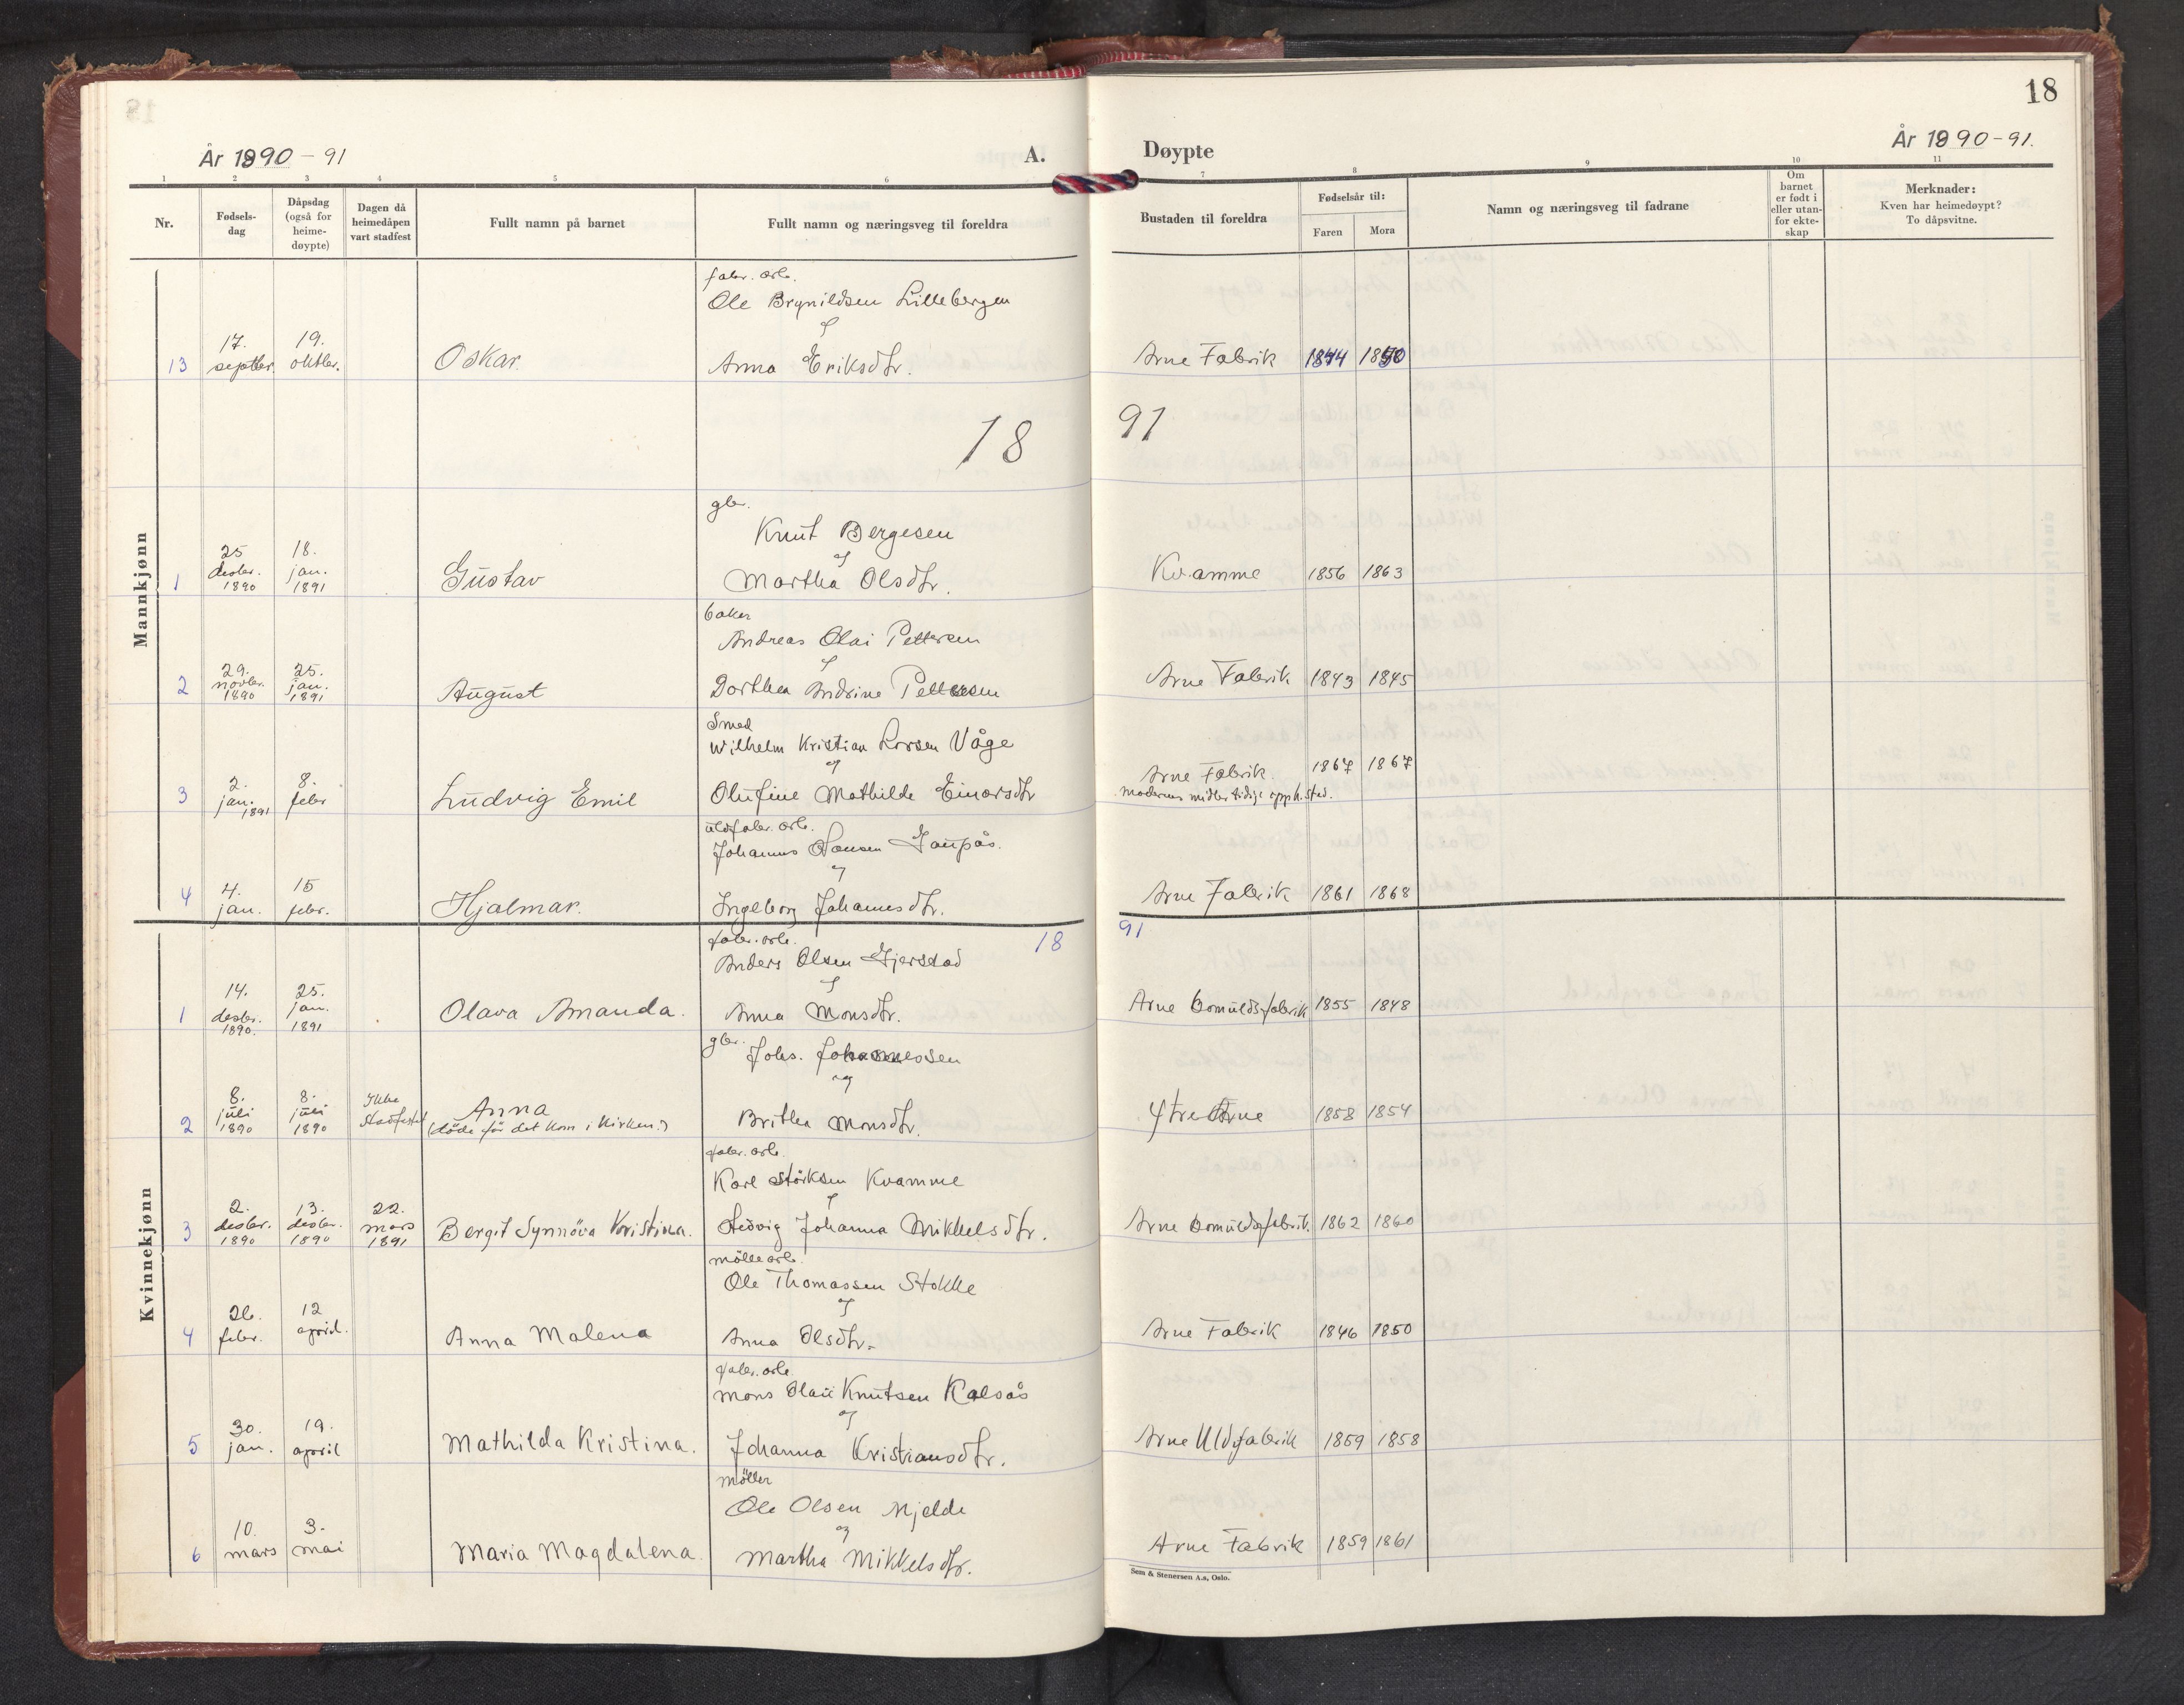 18
År 1890 - 91
A.
Døypte
År 1890-91.
1 2 3 4 5 6 7 8 9 10 11
Nr.
Fødsels-
dag
Dåpsdag
(også for
heime-
døypte)
Dagen då
heimedåpen
vart stadfest
Fullt namn på barnet
Fullt namn og næringsveg til foreldra
Bustaden til foreldra
Fødselsår til:
Faren Mora
Namn og næringsveg til fadrane
Om
barnet
er født i
eller utan-
for ekte-
skap
Merknader:
Kven har heimedøypt?
To dåpsvitne.
Mannkjønn
fabr. arb.
Ole Brynildsen Lillebergen
og
13 17. septbr. 19. oktbr. Oskar. Anna Eriksdtr. Arne Fabrik 1844 1850
1891
gbr.
Knut Bergesen
og
1 25 desbr. 1890 18. jan. 1891 Gustav Martha Olsdtr. Kvamme 1856 1863
baker
Andreas Olai Pettersen
og
2 29. novbr. 1890 25. jan. 1891 August Dorthea Andrine Pettersen Arne Fabrik 1843 1845
Smed
Wilhelm Kristian Larsen Våge
og
3 2. jan. 1891 8. febr Ludvig Emil Olufine Mathilde Einarsdtr Arne Fabrik. 1867 1867
moderens midlertidige opph. sted.
uldfabr. arb.
Johannes Hansen Gaupås.
og
4 4. jan. 15 febr. Hjalmar. Ingeborg Johannesdtr. Arne Fabrik 1861 1868
Kvinnekjønn
1891
fabr. arb.
Anders Olsen Gjerstad
og
1 14. desbr. 1890. 25. jan. 1891 Olava Amanda. Anna Monsdtr. Arne Bomuldsfabrik 1855 1848
gbr.
Johs. Johannessen
og
2 8. juli 1890 8. juli 1890 Ikke Stadfestet Anna
(döde før det kom i kirken.) Britha Monsdtr. Ytre Arne 1858 1854
fabr. arb.
Karl Störksen Kvamme
og
3 2. desbr. 1890 13. desbr. 1890 22. mars 1891 Bergit Synnöva Kristina. Hedvig Johanna Mikkelsdtr. Arne Bomuldsfabrik. 1862 1860
möllearb.
Ole Thomassen Stokke
og
4 26. febr. 12 april. Anna Malena Anna Olsdtr. Arne Fabrik 1846 1850
fabr. arb.
Mons Olai Knutsen Kalsås
og
5 30. jan. 19. april Mathilda Kristina. Johanna Kristiansdtr. Arne Uldfabrik 1859 1858
Möller
Ole Olsen Mjelde
og
6 10. mars 3. mai Maria Magdalena. Martha Mikkelsdtr. Arne Fabrik 1859 1861
Sem & Stenersen A.s, Oslo.